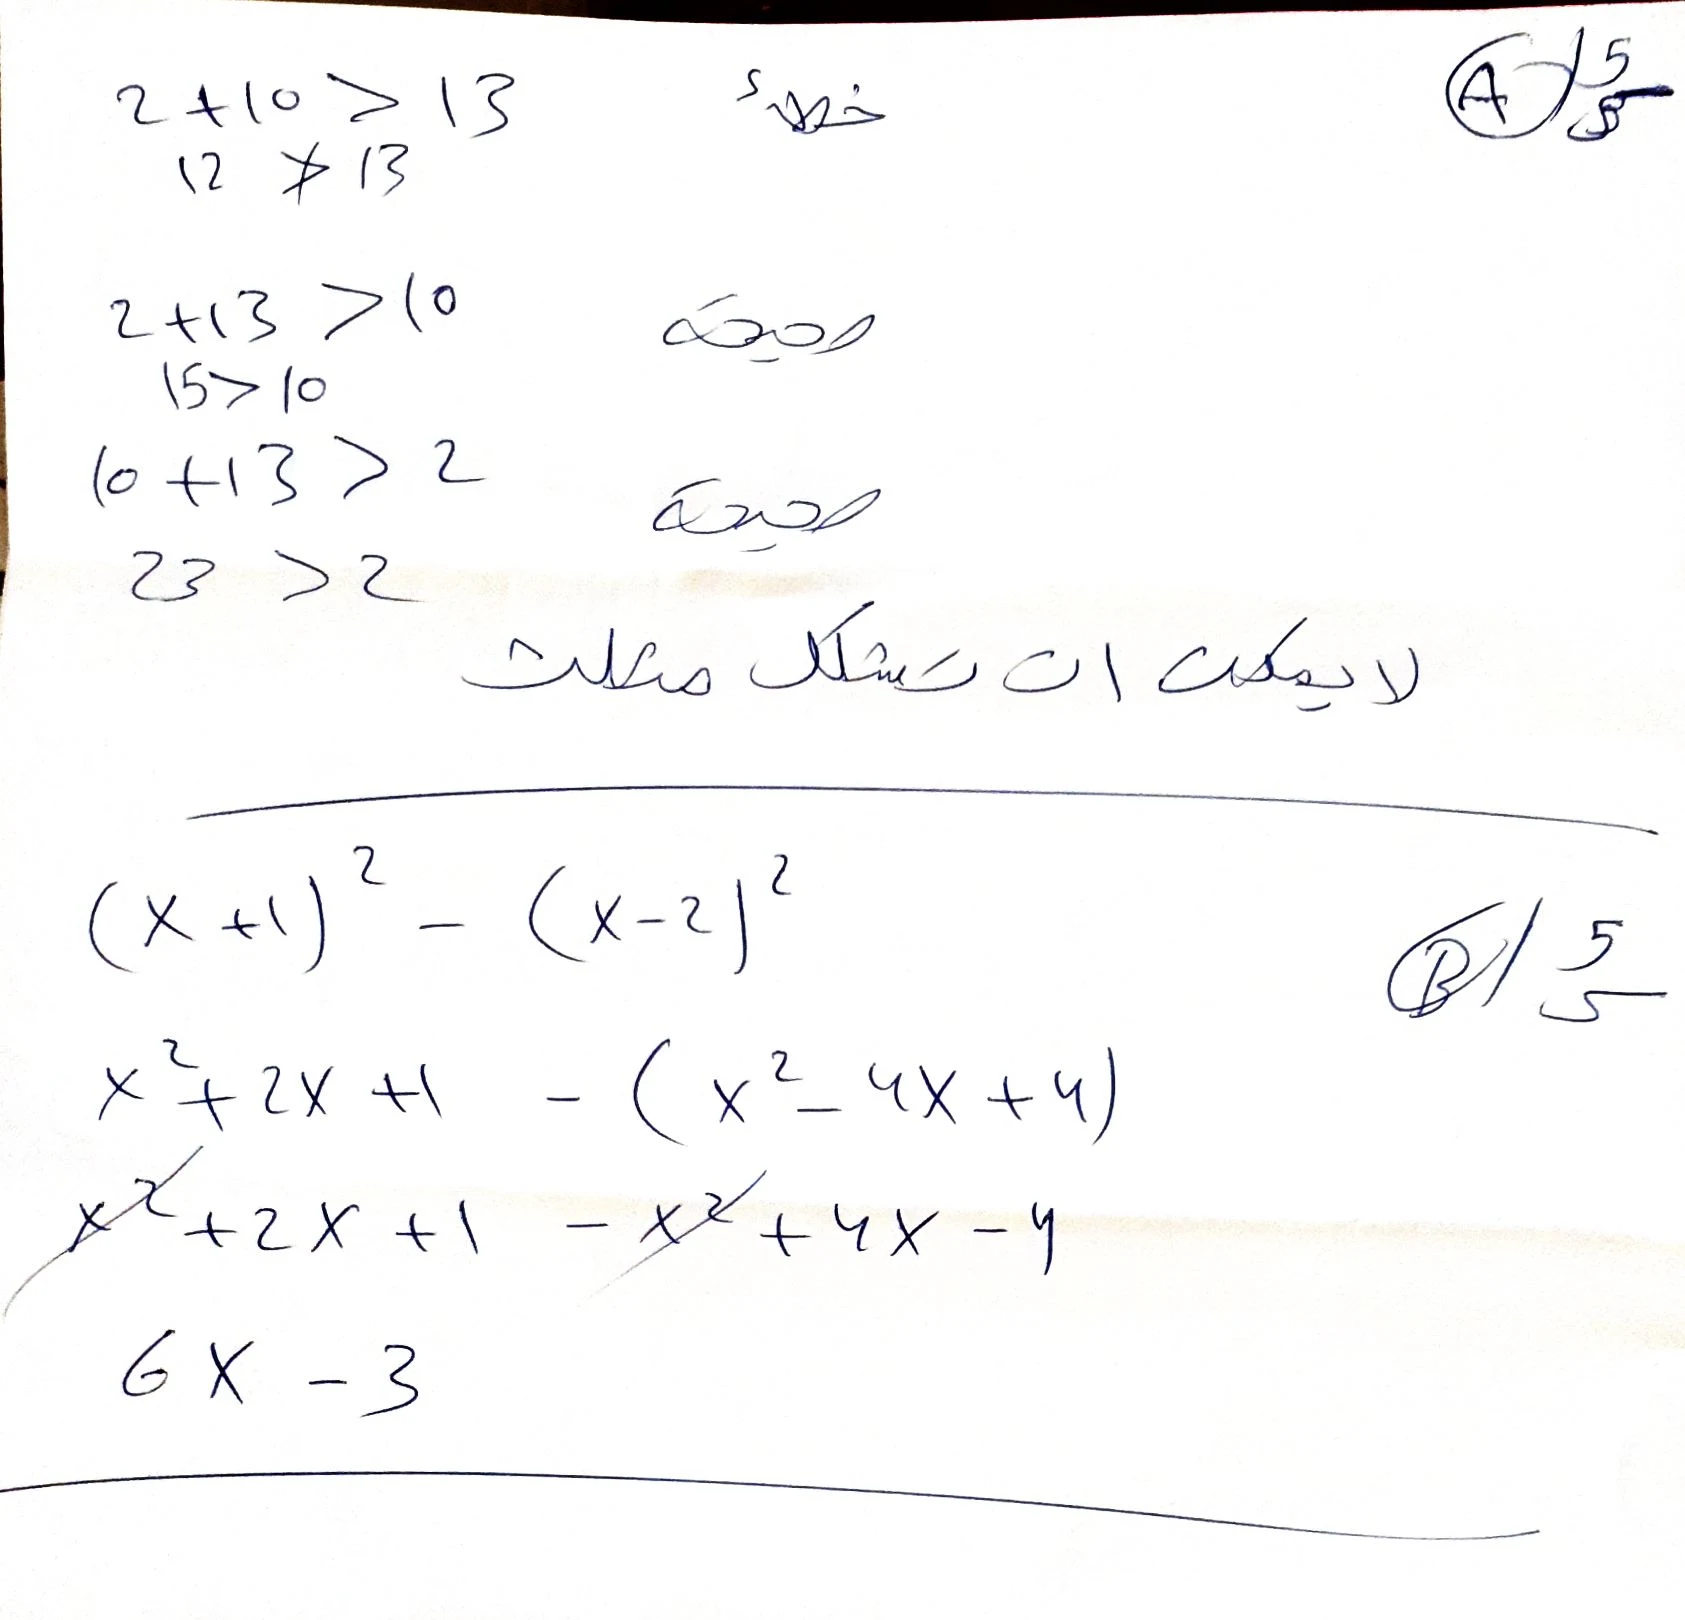 2 + 10 > 13 خطاء A / 5/5
12 ≯ 13
2 + 13 > 10 صحيحة
15 > 10
10 + 13 > 2 صحيحة
23 > 2
لا يمكن ان تشكل مثلث
(x + 1)² - (x - 2)² B / 5/5
x² + 2x + 1 - (x² - 4x + 4)
x² + 2x + 1 - x² + 4x - 4
6x - 3